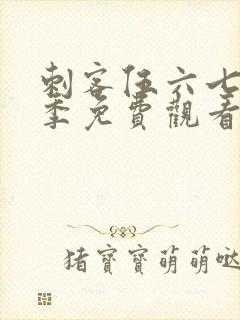 刺客伍六七
季免費觀看
猪寶寶萌萌噠